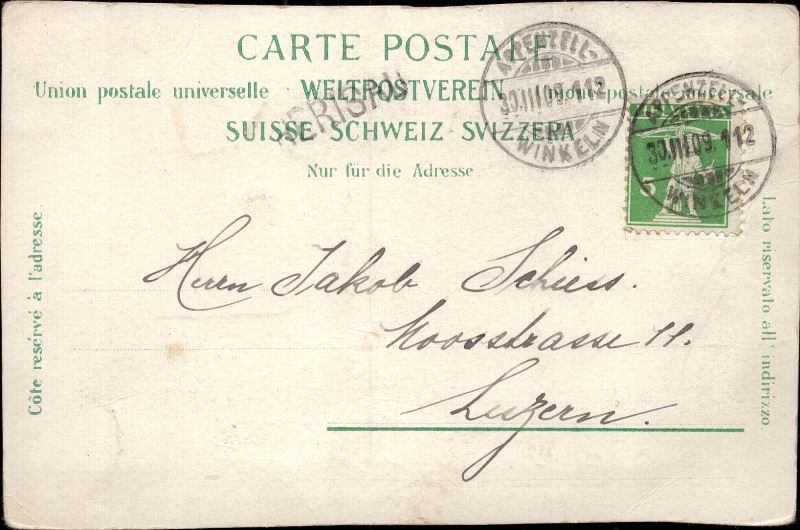 CARTE POSTALE
Union postale universelle WELTPOSTVEREIN Unione postale universale
SUISSE SCHWEIZ SVIZZERA
Nur für die Adresse
HERISAU
APPENZELL-
30.III.09. 112
WINKELN
APPENZELL-
30.III.09. 112
WINKELN
5
Côté resérvé à l'adresse
Lato riservato all' indirizzo.
Herrn Jakob Schiess.
Moosstrasse 11.
Luzern.